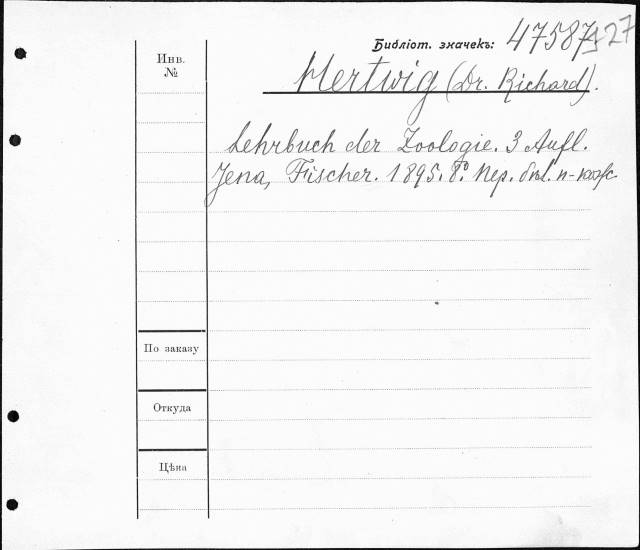 Библіот. значекъ: 47587 27
Инв.
№
Hertwig (Dr. Richard).
Lehrbuch der Zoologie. 3 Aufl.
Jena, Fischer. 1895. 8º. Пер. бѣл. п-кож.
По заказу
Откуда
Цѣна